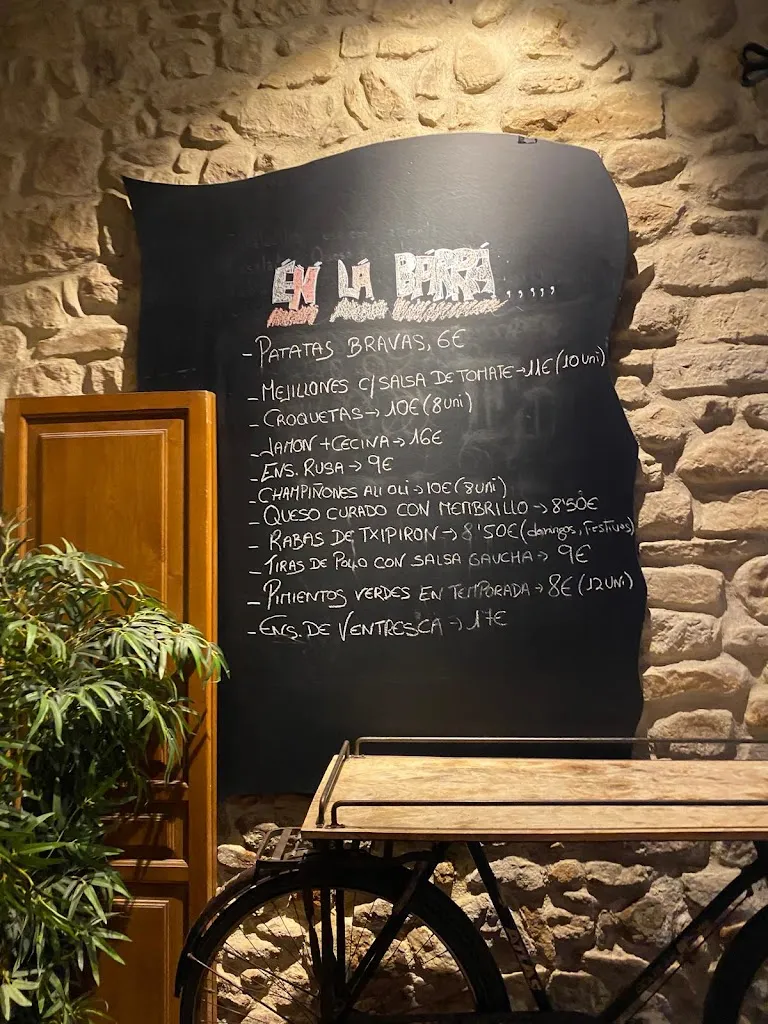 ÉN LÁ BÁRRÁ.....
- PATATAS BRAVAS, 6€
- MEJILLONES C/SALSA DE TOMATE → 11€ (10 uni)
- CROQUETAS → 10€ (8 uni)
- JAMON + CECINA → 16€
- ENS. RUSA → 9€
- CHAMPIÑONES ALI OLI → 10€ (8 uni)
- QUESO CURADO CON MEMBRILLO → 8'50€
- RABAS DE TXIPIRON → 8'50€ (domingos, festivos)
- TIRAS DE POLLO CON SALSA GAUCHA → 9€
- PIMIENTOS VERDES EN TEMPORADA → 8€ (12 UNi)
- ENS. DE VENTRESCA → 17€